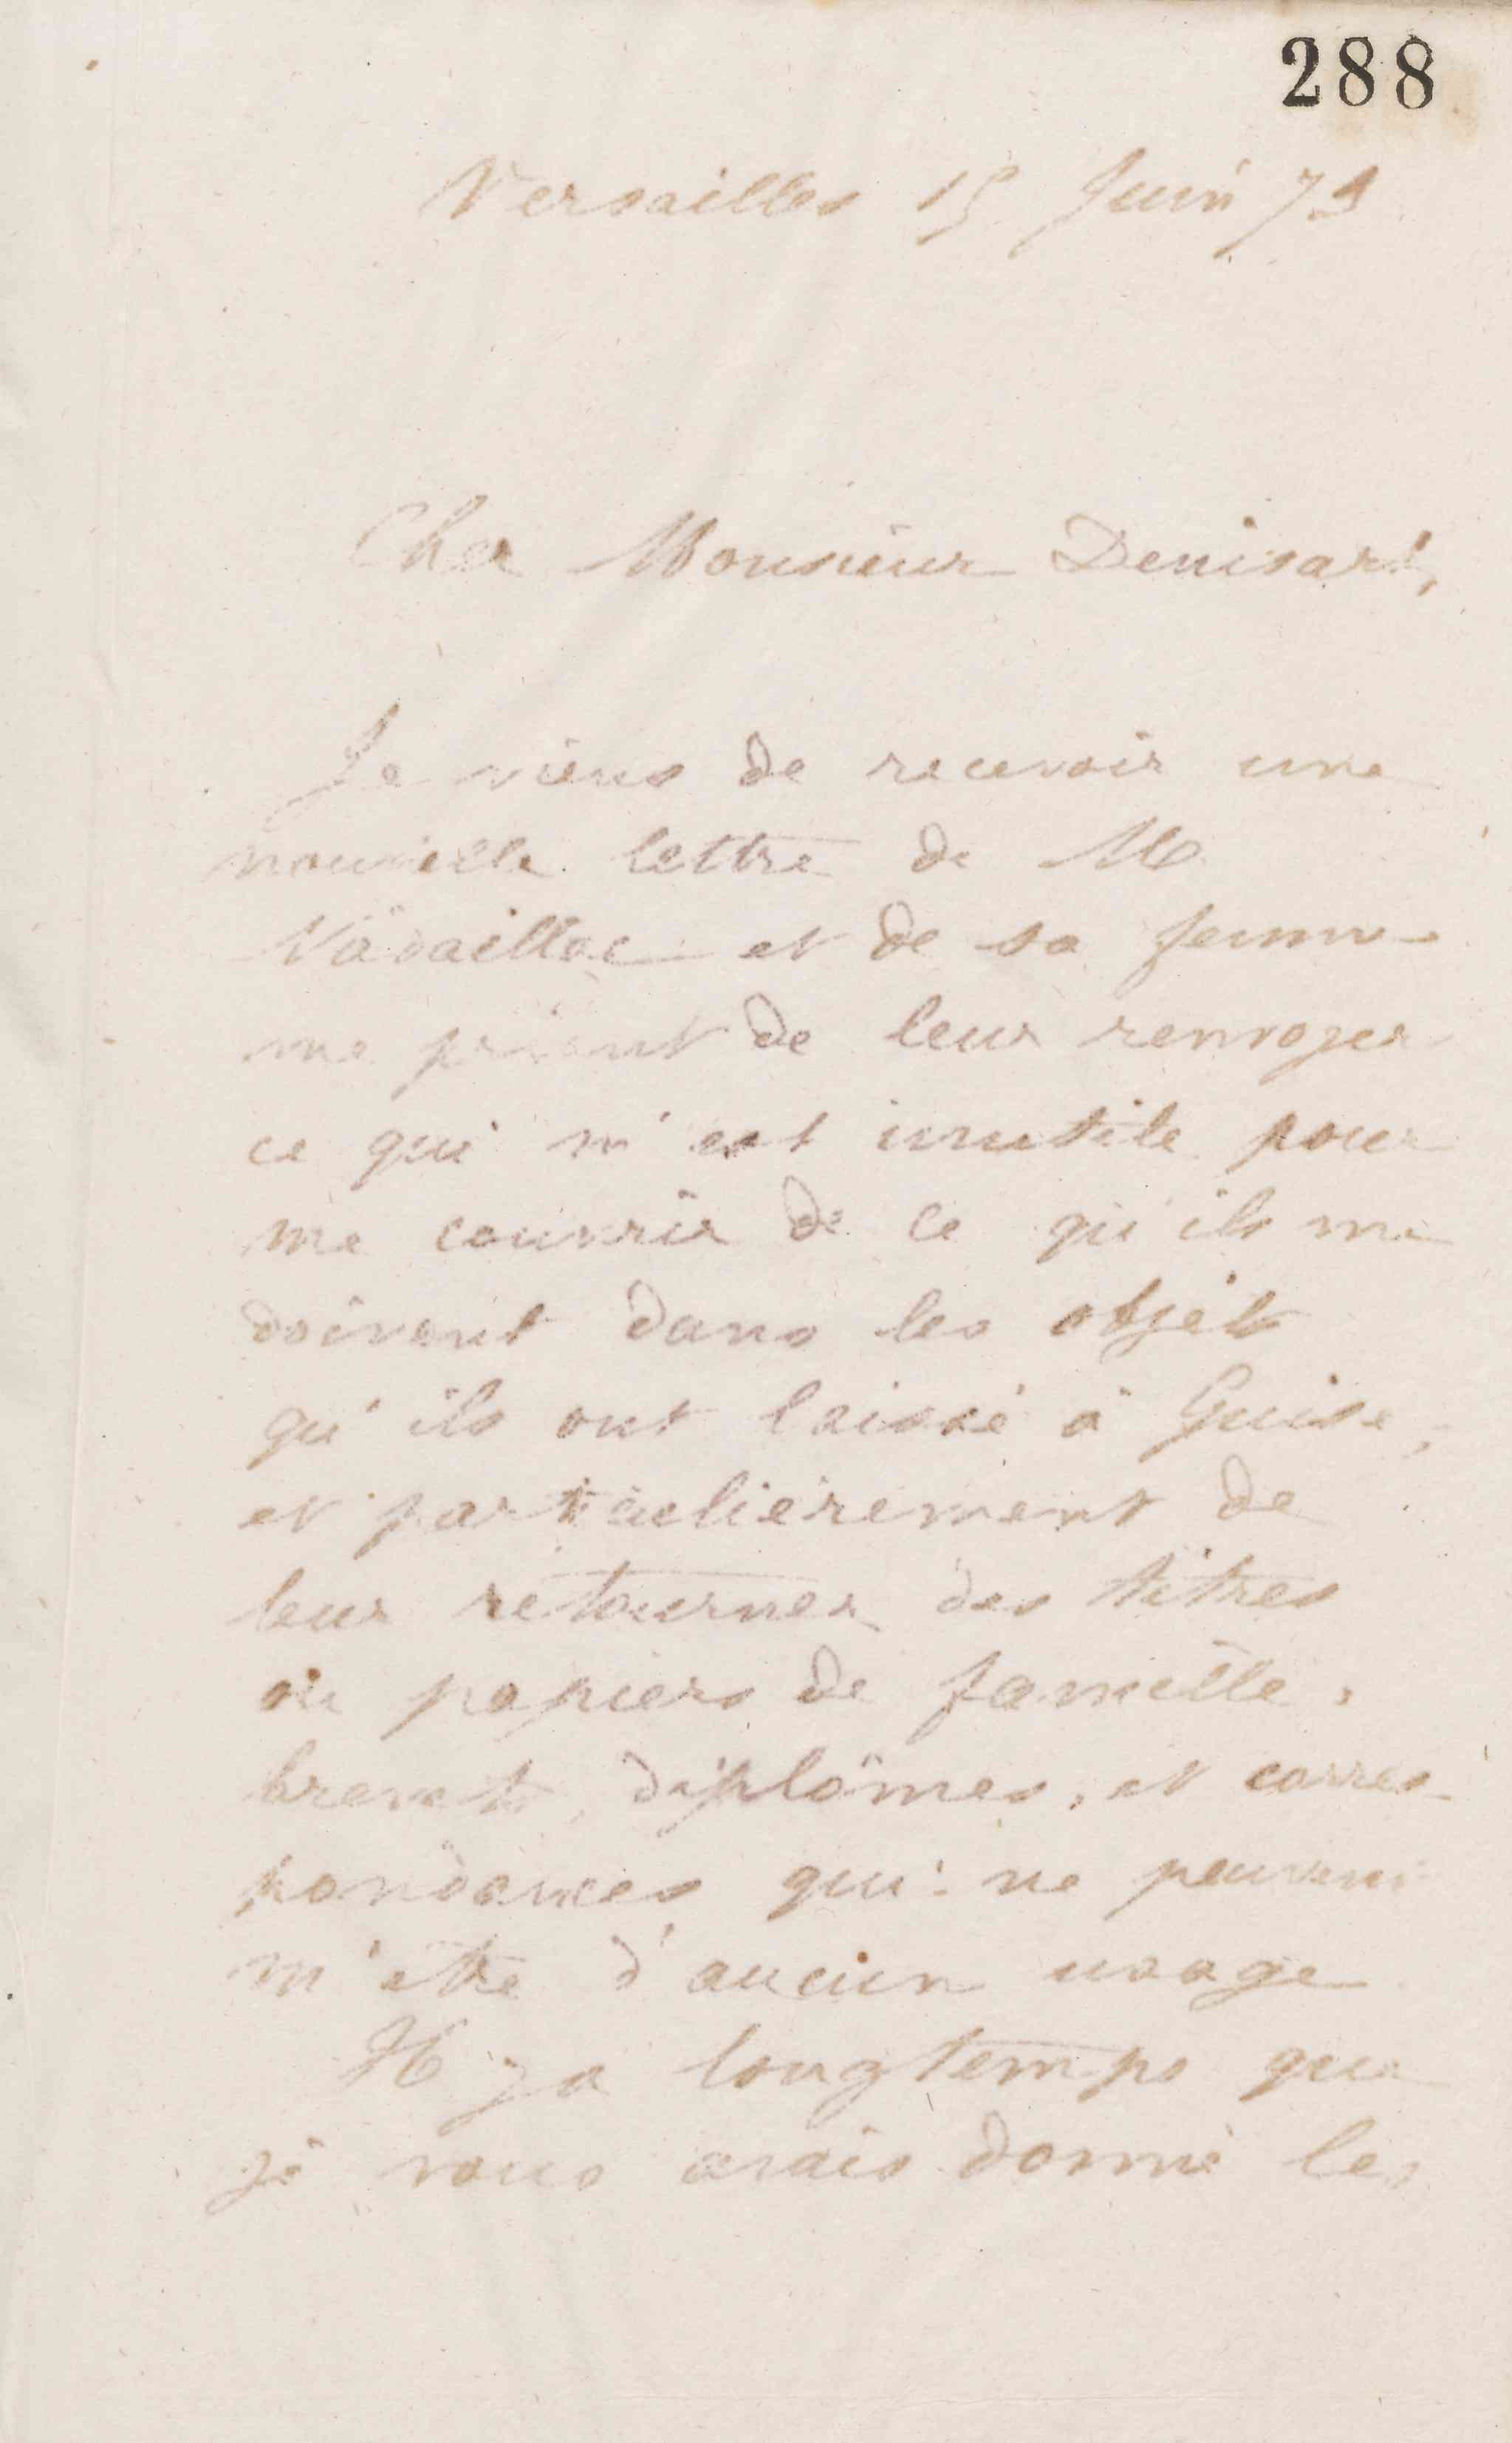 288
Versailles 15 Juin 73
Cher Monsieur Denisart,
Je viens de recevoir une
nouvelle lettre de M
et de sa femme
me priant de leur renvoyer
ce qui m'est inutile pour
me couvrir de ce qu'ils me
doivent dans les objets
qu'ils ont laissé à Guise,
et particulièrement de
leur retourner des titres
ou papiers de famille,
brevets, diplômes, et corres-
pondances qui ne peuvent
m'être d'aucun usage
Il y a longtemps que
je vous avais donné les